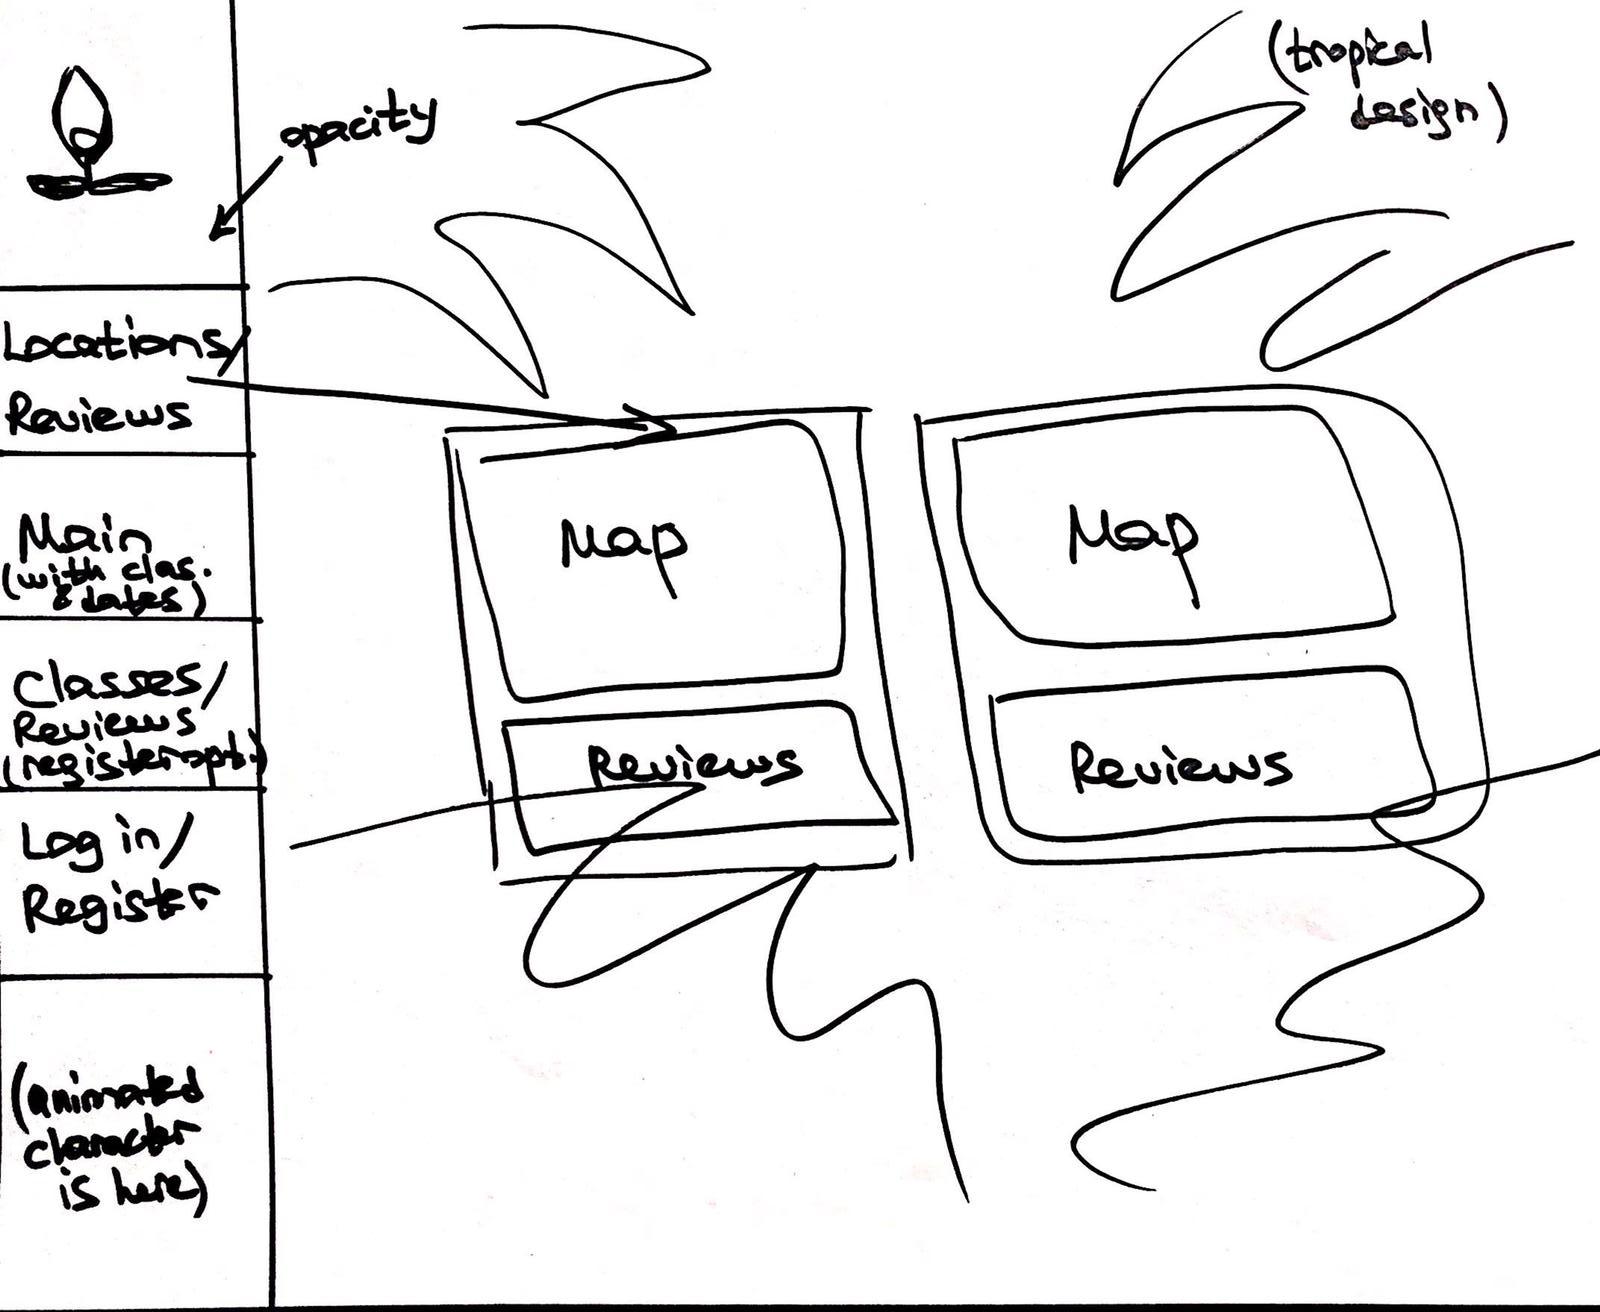 (tropical
design)
opacity
Locations/
Reviews
Main
(with clas.
& dates)
Classes/
Reviews
(register opt.)
Log in/
Register
(animated
character
is here)
Map
Reviews
Map
Reviews